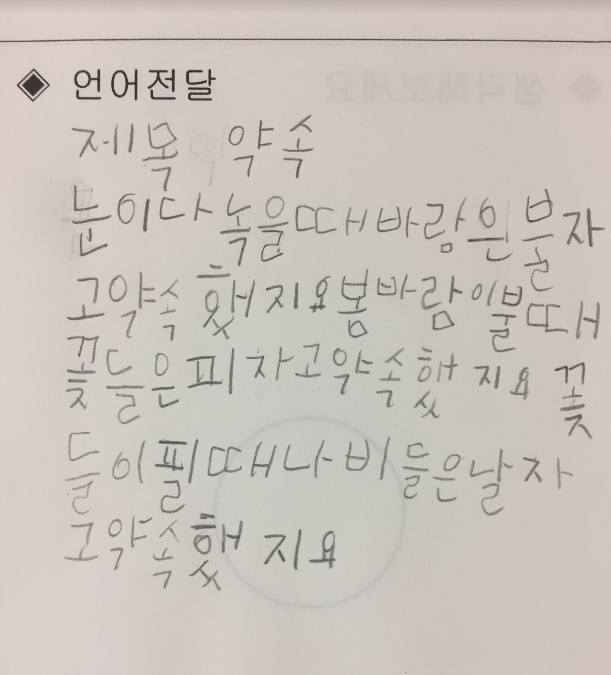 ◈ 언어전달
제목 약속
눈이다녹을때바람은불자
고약속했지요봄바람이불때
꽃들은피자고약속했지요 꽃
들이필때나비들은날자
고약속했지요